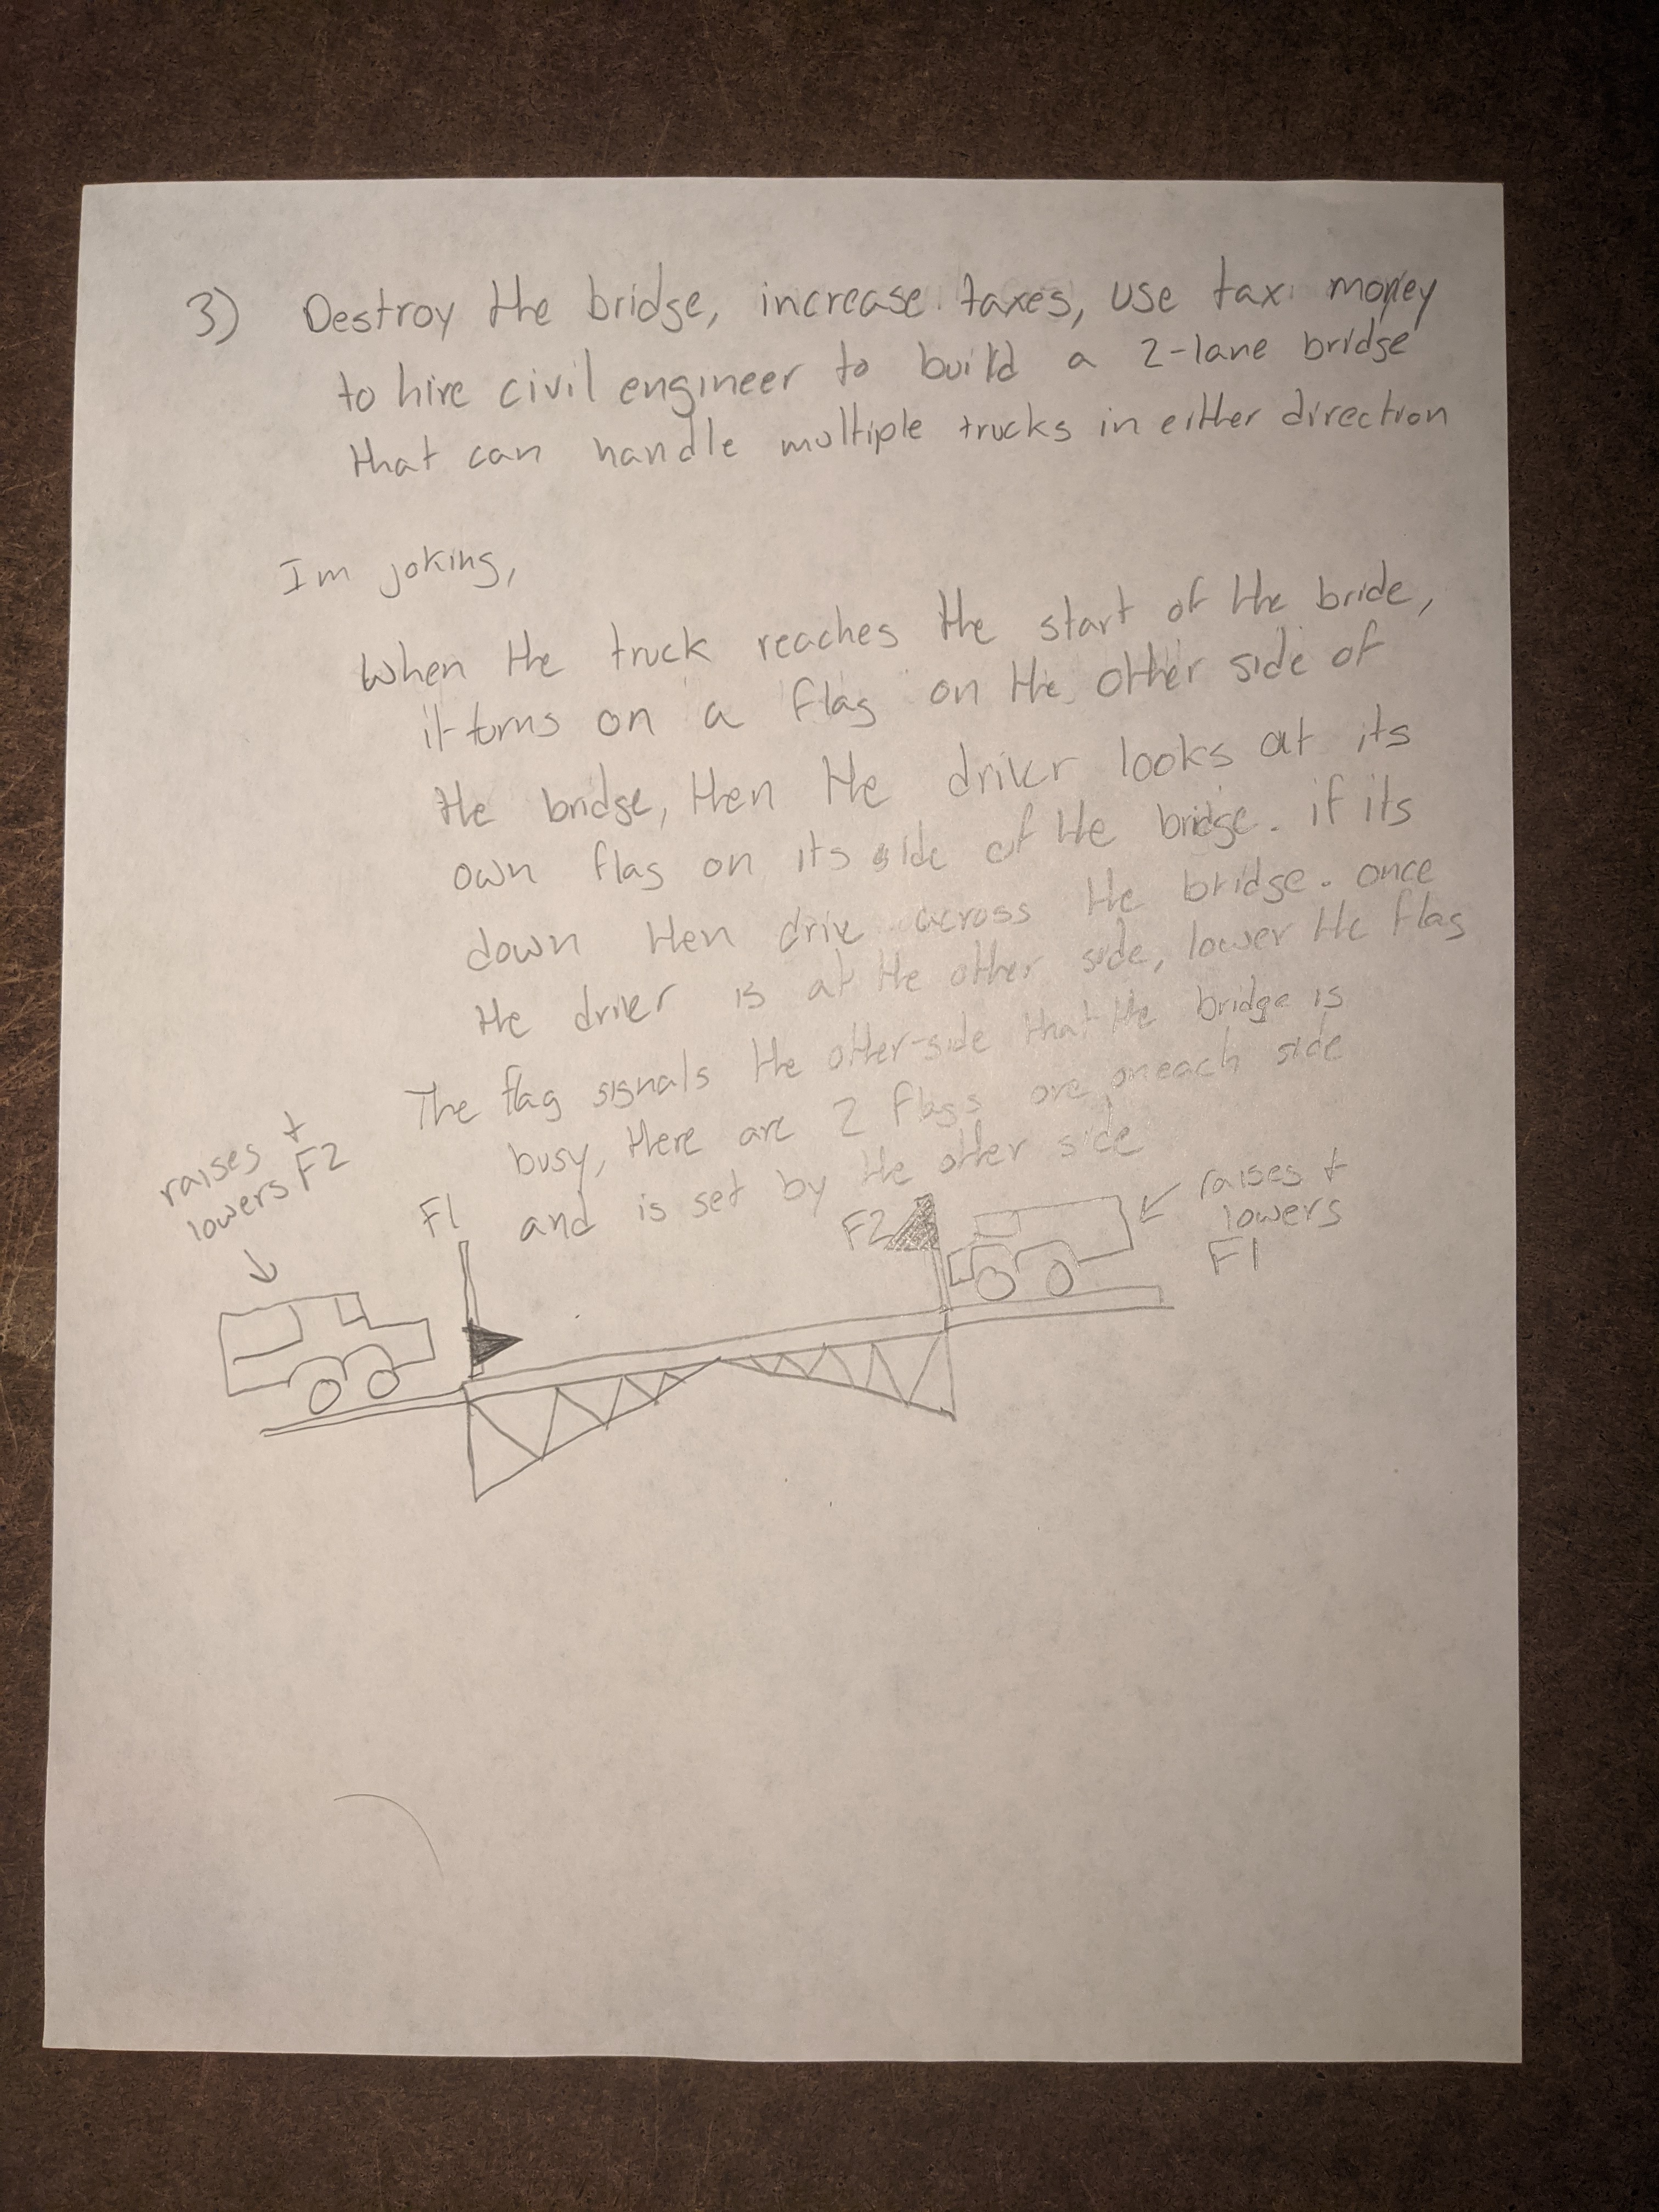 3) Destroy the bridge, increase taxes, use tax money
to hire civil engineer to build a 2-lane bridge
that can handle multiple trucks in either direction
Im joking,
When the truck reaches the start of the bride,
it turns on a flag on the other side of
the bridge, then the driver looks at its
own flag on its side of the bridge. if its
down then drive across the bridge. once
the driver is at the other side, lower the flag
The flag signals the other-side that the bridge is
busy, there are 2 flags one on each side
and is set by the other side
raises &
lowers F2
F1
F2
raises &
lowers
F1